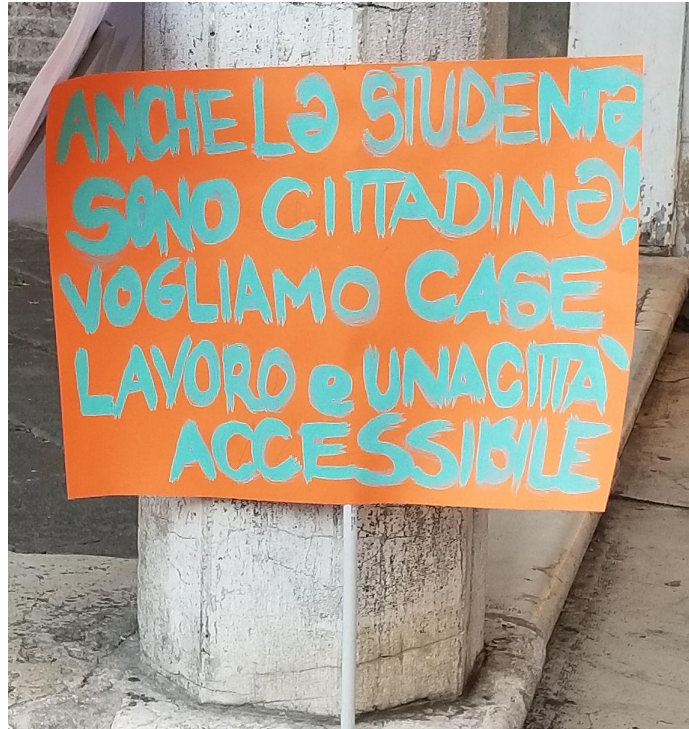 ANCHE LƏ STUDENTƏ
SONO CITTADINƏ!
VOGLIAMO CASE
LAVORO e UNA CITTÀ
ACCESSIBILE